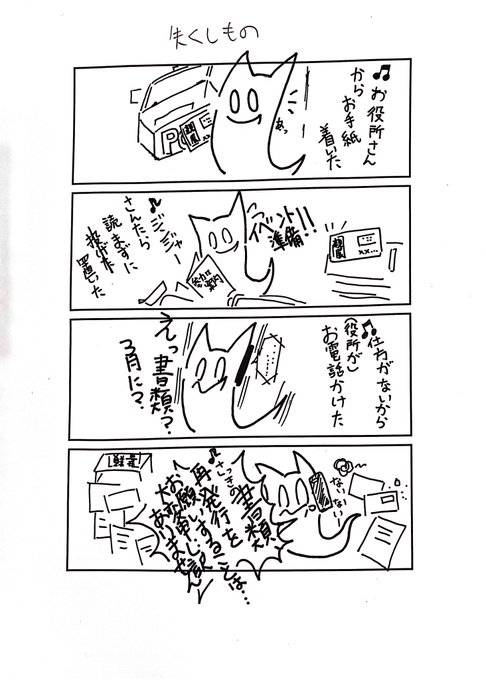 失くしもの
♫お役所さん
からお手紙
着いた
あっ
P
♪ジンジャー
さんたら
読まずに
置いた
イベント
準備!!
参加
案内
xx...
♫仕方がないから
(役所が)
お電話かけた
えっ書類?
3月に?
ないないー
♫さっきの
書類
再発行を
お願いすることは…
大変申し訳
ありません